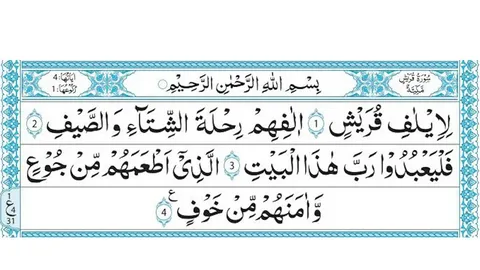 سُوْرَةُ قُرَيْشٍ مَكِّيَّةٌ بِسْمِ اللهِ الرَّحْمٰنِ الرَّحِيْمِ اٰيَاتُهَا: 4 رُكُوْعُهَا: 1
لِاِيْلٰفِ قُرَيْشٍ 1 اٖلٰفِهِمْ رِحْلَةَ الشِّتَآءِ وَالصَّيْفِ 2
فَلْيَعْبُدُوْا رَبَّ هٰذَا الْبَيْتِ 3 الَّذِيْٓ اَطْعَمَهُمْ مِّنْ جُوْعٍ
وَّاٰمَنَهُمْ مِّنْ خَوْفٍ 4
1 ع 4 31